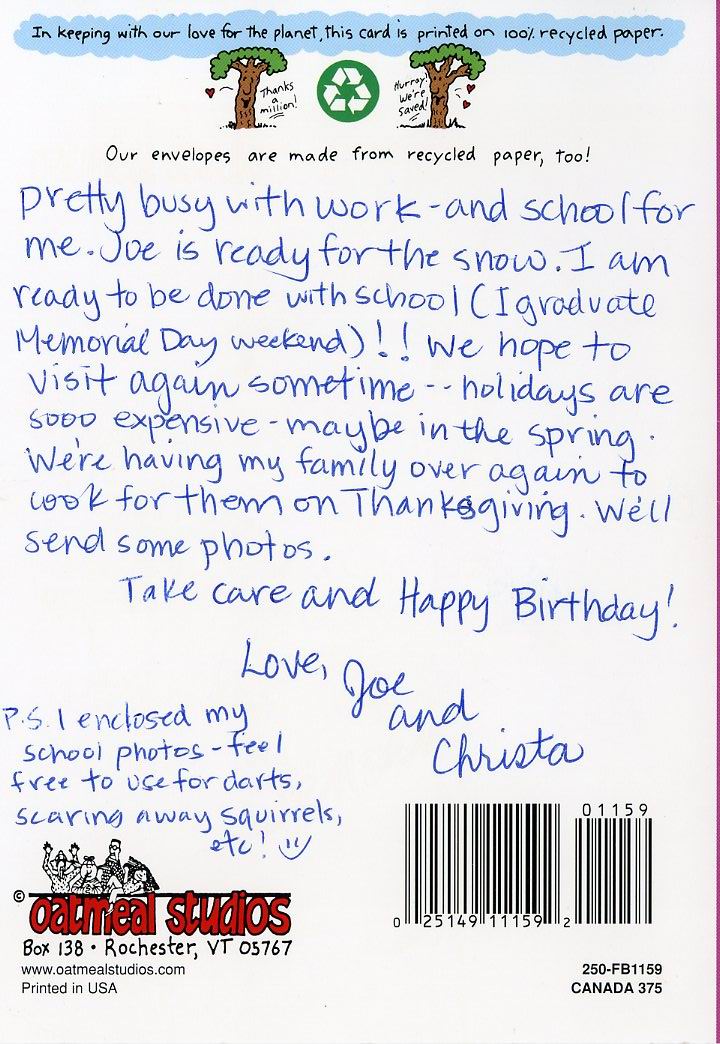 In keeping with our love for the planet, this card is printed on 100% recycled paper.
Thanks a million!
Hurray! We're saved!
Our envelopes are made from recycled paper, too!
Pretty busy with work - and school for
me. Joe is ready for the snow. I am
ready to be done with school (I graduate
Memorial Day weekend)!! We hope to
visit again sometime -- holidays are
sooo expensive - maybe in the spring.
We're having my family over again to
cook for them on Thanksgiving. We'll
send some photos.
Take care and Happy Birthday!
Love, Joe
and
Christa
P.S. I enclosed my
school photos - feel
free to use for darts,
scaring away squirrels,
etc! :)
© oatmeal studios
Box 138 • Rochester, VT 05767
www.oatmealstudios.com
Printed in USA
01159
0 25149 11159 2
250-FB1159
CANADA 375